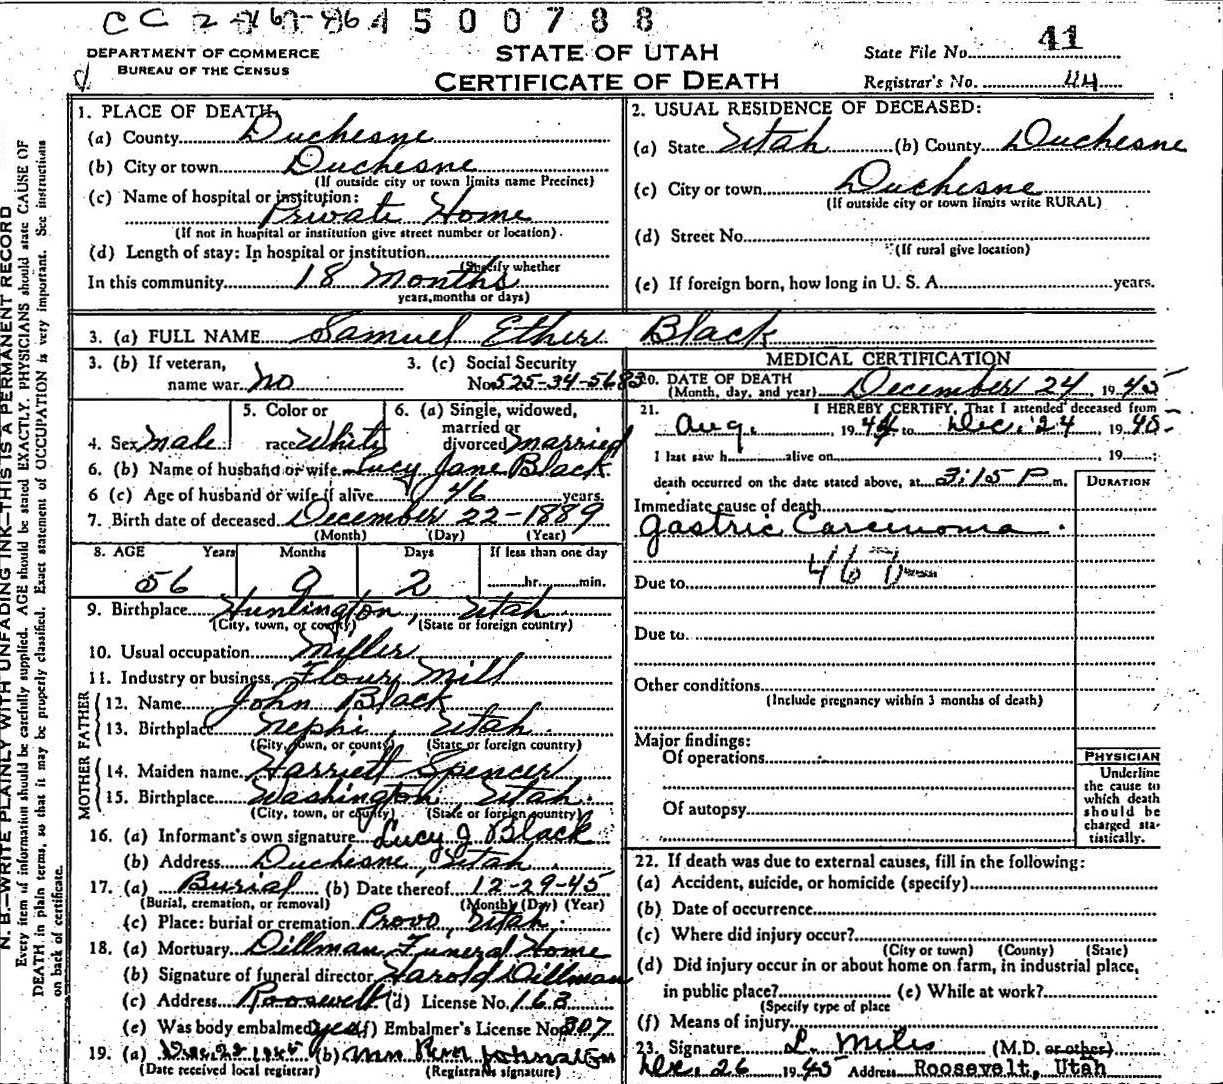 CC 2-767-86 4500788
DEPARTMENT OF COMMERCE
BUREAU OF THE CENSUS
STATE OF UTAH
CERTIFICATE OF DEATH
State File No. 41
Registrar's No. 44
N. B.—WRITE PLAINLY WITH UNFADING INK—THIS IS A PERMANENT RECORD
Every item of information should be carefully supplied. AGE should be stated EXACTLY. PHYSICIANS should state CAUSE OF
DEATH in plain terms, so that it may be properly classified. Exact statement of OCCUPATION is very important. See instructions
on back of certificate.
1. PLACE OF DEATH
(a) County Duchesne
(b) City or town Duchesne
(If outside city or town limits name Precinct)
(c) Name of hospital or institution:
Private Home
(If not in hospital or institution give street number or location)
(d) Length of stay: In hospital or institution
(Specify whether
In this community 18 Months
years, months or days)
2. USUAL RESIDENCE OF DECEASED:
(a) State Utah (b) County Duchesne
(c) City or town Duchesne
(If outside city or town limits write RURAL)
(d) Street No.
(If rural give location)
(e) If foreign born, how long in U. S. A. years.
3. (a) FULL NAME Samuel Ether Black
3. (b) If veteran,
name war no
3. (c) Social Security
No. 525-34-5683
4. Sex male
5. Color or
race White
6. (a) Single, widowed,
married or
divorced married
6. (b) Name of husband or wife Lucy Jane Black
6 (c) Age of husband or wife if alive 46 years.
7. Birth date of deceased December 22-1889
(Month) (Day) (Year)
8. AGE Years Months Days If less than one day
56 0 2 hr. min.
9. Birthplace Huntington, Utah
(City, town, or county) (State or foreign country)
10. Usual occupation Miller
11. Industry or business Flour Mill
FATHER
12. Name John Black
13. Birthplace Nephi, Utah
(City, town, or county) (State or foreign country)
MOTHER
14. Maiden name Harriett Spencer
15. Birthplace Washington, Utah
(City, town, or county) (State or foreign country)
16. (a) Informant's own signature Lucy J Black
(b) Address Duchesne, Utah
17. (a) Burial (b) Date thereof 12-29-45
(Burial, cremation, or removal) (Month) (Day) (Year)
(c) Place: burial or cremation Provo, Utah
18. (a) Mortuary Dillman Funeral Home
(b) Signature of funeral director Harold Dillman
(c) Address Roosevelt (d) License No. 163
(e) Was body embalmed yes (f) Embalmer's License No. 307
19. (a) Dec. 29 1945 (b) Mrs
(Date received local registrar) (Registrar's signature)
MEDICAL CERTIFICATION
20. DATE OF DEATH
(Month, day, and year) December 24, 1945
21. I HEREBY CERTIFY, That I attended deceased from
Aug. 1944 to Dec. 24 1945
I last saw h alive on 19 ;
death occurred on the date stated above, at 3:15 P m.
DURATION
Immediate cause of death
Gastric Carcinoma
Due to
Due to
Other conditions
(Include pregnancy within 3 months of death)
Major findings:
Of operations
Of autopsy
PHYSICIAN
Underline
the cause to
which death
should be
charged sta-
tistically.
22. If death was due to external causes, fill in the following:
(a) Accident, suicide, or homicide (specify)
(b) Date of occurrence
(c) Where did injury occur?
(City or town) (County) (State)
(d) Did injury occur in or about home on farm, in industrial place,
in public place? (e) While at work?
(Specify type of place
(f) Means of injury
23. Signature L. Miles (M.D. or other)
Dec. 26 1945 Address Roosevelt, Utah